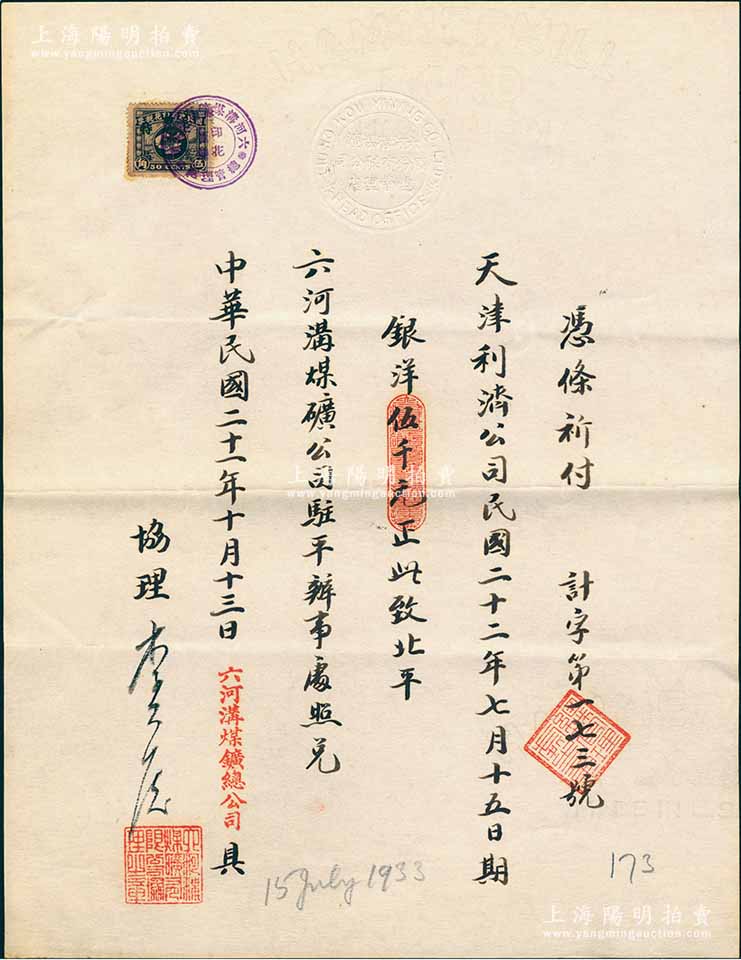 憑條祈付 計字第一七三號
天津利濟公司民國二十二年七月十五日期
銀洋伍千元正此致北平
六河溝煤礦公司駐平辦事處照兌
中華民國二十一年十月十三日 六河溝煤鑛總公司 具
協理
15 July 1933
173
50 CENTS
HEAD OFFICE
上海陽明拍賣
www.yangmingauction.com
上海陽明拍賣
www.yangmingauction.com
上海陽明拍賣
www.yangmingauction.com